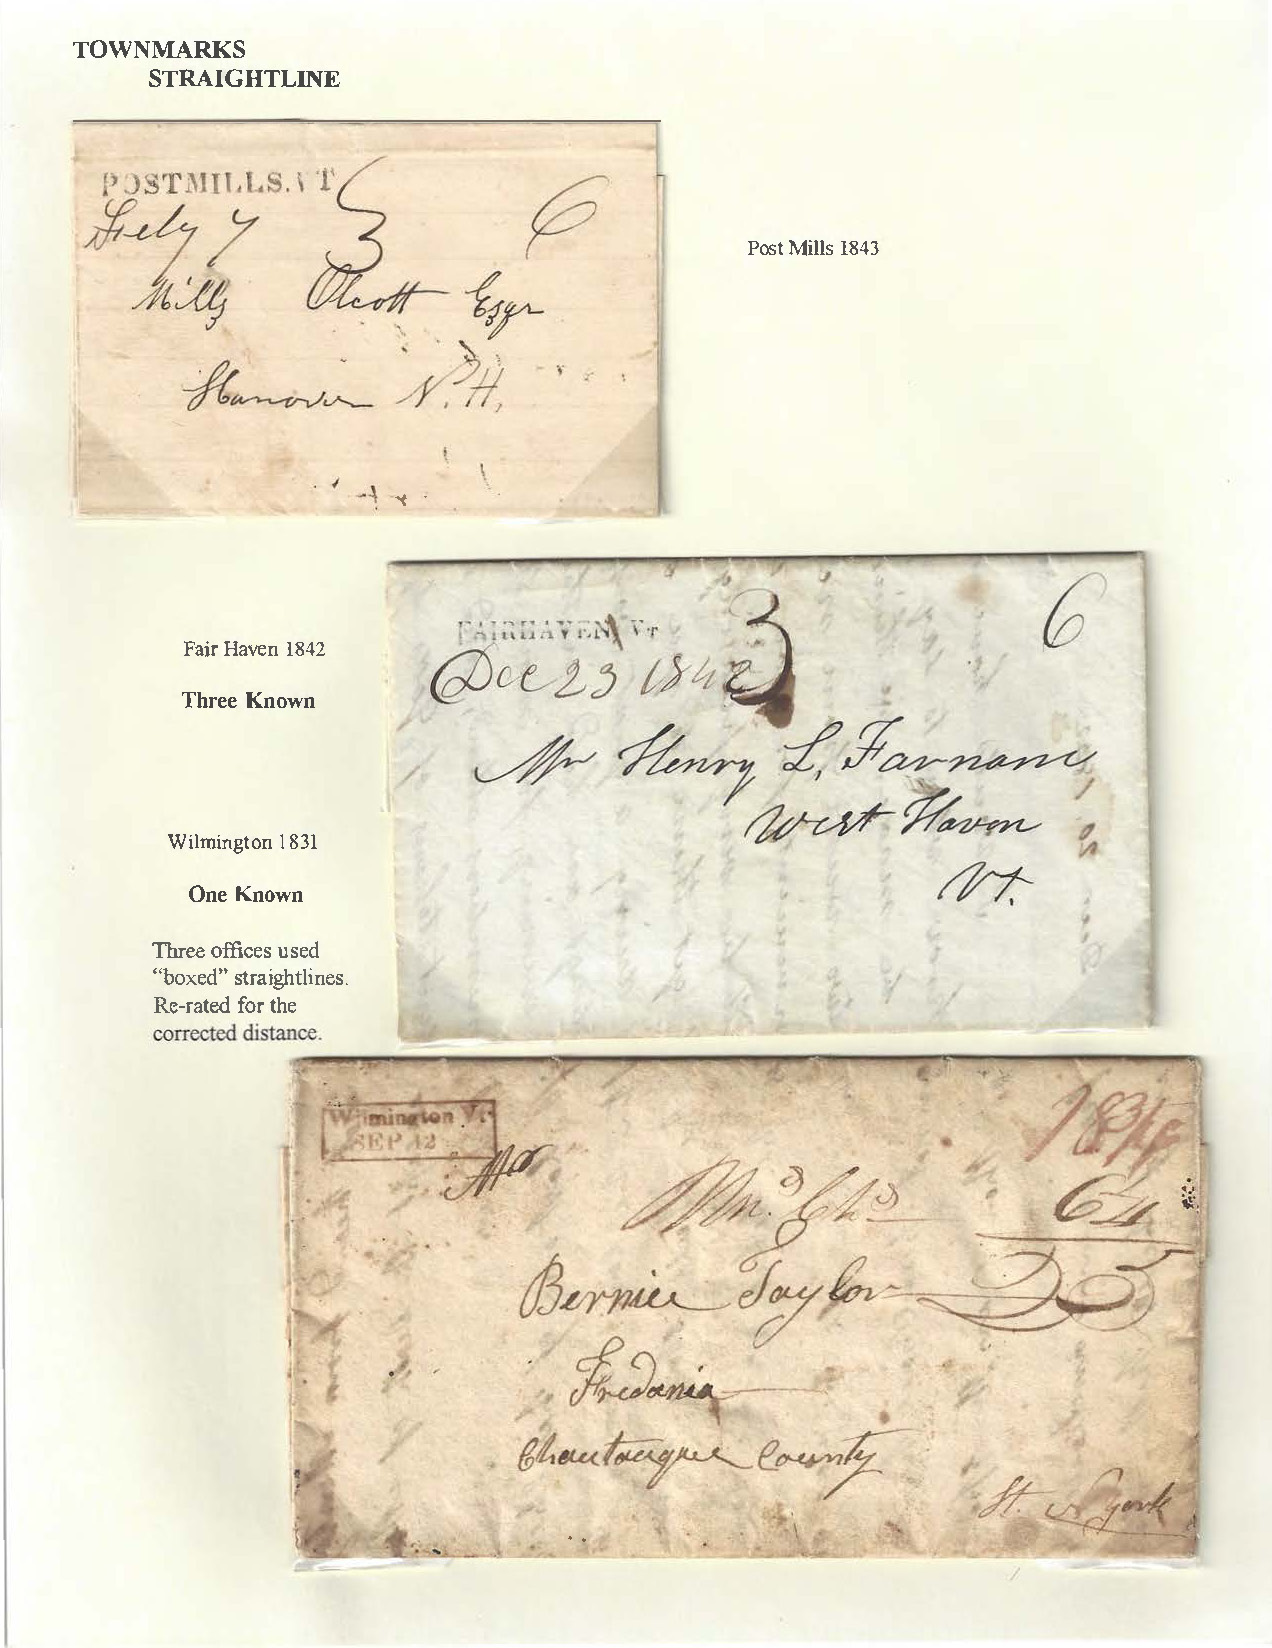 TOWNMARKS
STRAIGHTLINE
POSTMILLS. VT
July 7 3 6
Mills Olcott Esqr
Hanover N.H.
Post Mills 1843
Fair Haven 1842
Three Known
FAIRHAVEN, VT 3 6
Dec 23 1842
Mr Henry L. Farnam
West Haven
Vt.
Wilmington 1831
One Known
Three offices used
“boxed” straightlines.
Re-rated for the
corrected distance.
Wilmington Vt.
SEP 12
18 3/4
Mr
6 1/4
Bernice Taylor 25
Fredonia
Chautauque County
St. N York